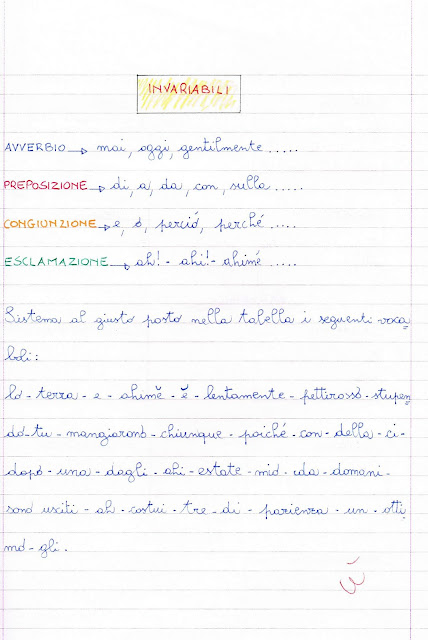 INVARIABILI
AVVERBIO → mai, oggi, gentilmente.....
PREPOSIZIONE → di, a, da, con, sulla.....
CONGIUNZIONE → e, o, perciò, perché.....
ESCLAMAZIONE → ah! - ahi! - ahimé.....
Sistema al giusto posto nella tabella i seguenti voca
boli:
lo - terra - e - ahimě - ě - lentamente - pettirosso - stupen
do - tu - mangiarono - chiunque - poiché - con - della - ci -
dopo - una - dagli - ahi - estate - mio - da - domani -
sono usciti - ah - costui - tre - di - pazienza - un - otti
mo - gli.